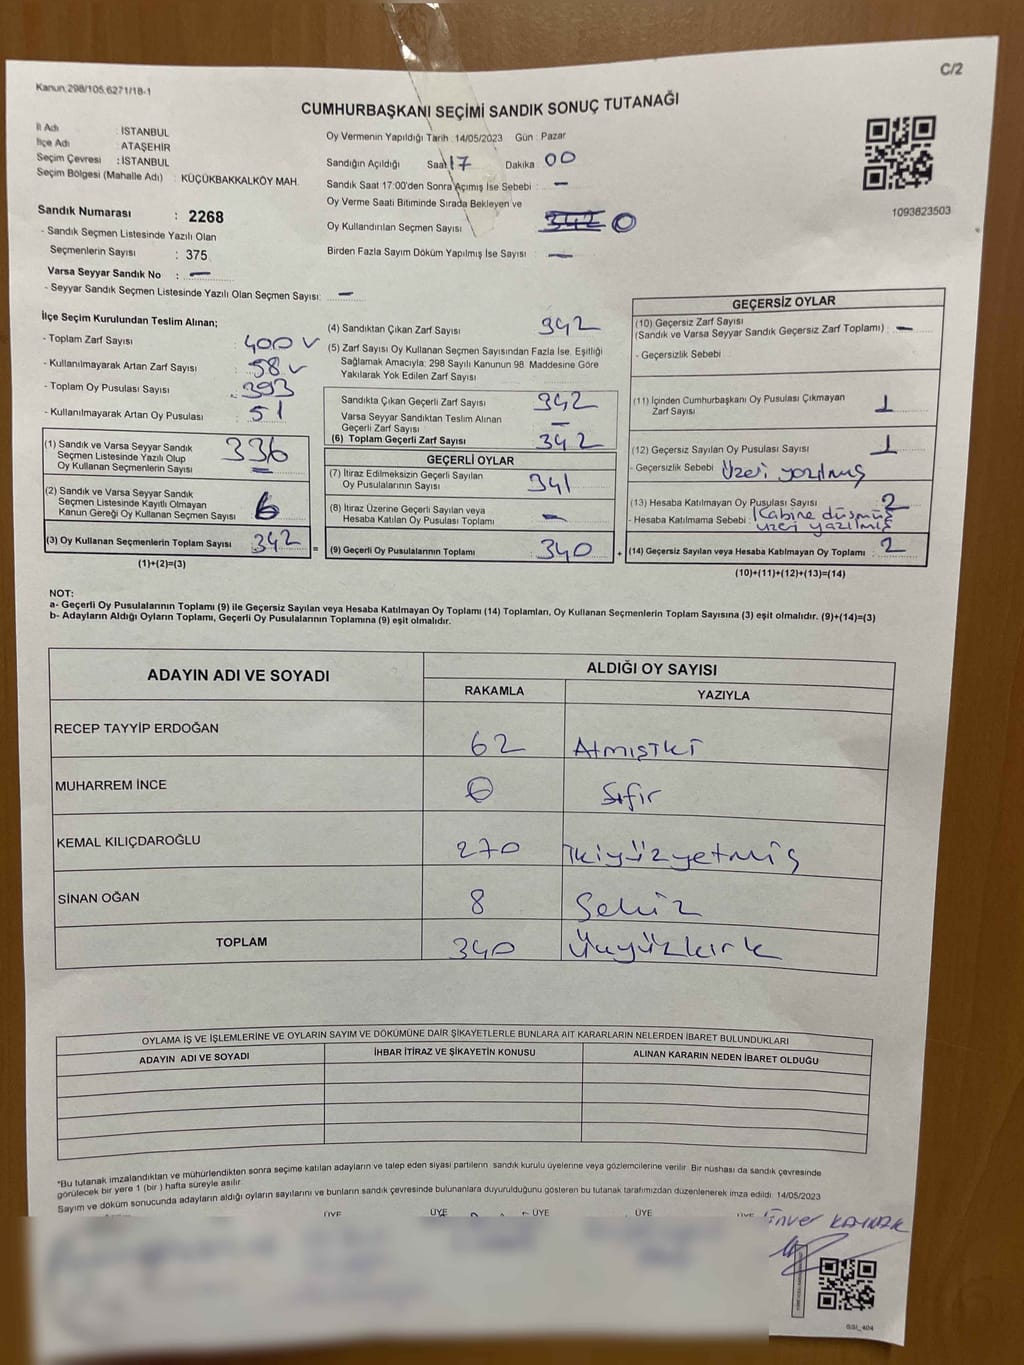 C/2
Kanun,298/105,6271/18-1
CUMHURBAŞKANI SEÇİMİ SANDIK SONUÇ TUTANAĞI
İl Adı : İSTANBUL
İlçe Adı : ATAŞEHİR
Seçim Çevresi : İSTANBUL
Seçim Bölgesi (Mahalle Adı) : KÜÇÜKBAKKALKÖY MAH.
Sandık Numarası : 2268
- Sandık Seçmen Listesinde Yazılı Olan
Seçmenlerin Sayısı : 375
Varsa Seyyar Sandık No : —
- Seyyar Sandık Seçmen Listesinde Yazılı Olan Seçmen Sayısı: —
Oy Vermenin Yapıldığı Tarih :14/05/2023 Gün : Pazar
Sandığın Açıldığı Saat 17 Dakika 00
Sandık Saat 17:00'den Sonra Açımış İse Sebebi : —
Oy Verme Saati Bitiminde Sırada Bekleyen ve
Oy Kullandırılan Seçmen Sayısı 342 0
Birden Fazla Sayım Döküm Yapılmış İse Sayısı : —
1093823503
İlçe Seçim Kurulundan Teslim Alınan;
- Toplam Zarf Sayısı : 400 ✓
- Kullanılmayarak Artan Zarf Sayısı : 58 ✓
- Toplam Oy Pusulası Sayısı : 393
- Kullanılmayarak Artan Oy Pusulası : 51
(1) Sandık ve Varsa Seyyar Sandık
Seçmen Listesinde Yazılı Olup
Oy Kullanan Seçmenlerin Sayısı : 336
(2) Sandık ve Varsa Seyyar Sandık
Seçmen Listesinde Kayıtlı Olmayan
Kanun Gereği Oy Kullanan Seçmen Sayısı : 6
(3) Oy Kullanan Seçmenlerin Toplam Sayısı : 342 =
(1)+(2)=(3)
(4) Sandıktan Çıkan Zarf Sayısı : 342
(5) Zarf Sayısı Oy Kullanan Seçmen Sayısından Fazla İse, Eşitliği
Sağlamak Amacıyla; 298 Sayılı Kanunun 98. Maddesine Göre
Yakılarak Yok Edilen Zarf Sayısı :
Sandıkta Çıkan Geçerli Zarf Sayısı : 342
Varsa Seyyar Sandıktan Teslim Alınan
Geçerli Zarf Sayısı : —
(6) Toplam Geçerli Zarf Sayısı : 342
GEÇERLİ OYLAR
(7) İtiraz Edilmeksizin Geçerli Sayılan
Oy Pusulalarının Sayısı : 341
(8) İtiraz Üzerine Geçerli Sayılan veya
Hesaba Katılan Oy Pusulası Toplamı : —
(9) Geçerli Oy Pusulalarının Toplamı : 340 +
GEÇERSİZ OYLAR
(10) Geçersiz Zarf Sayısı
(Sandık ve Varsa Seyyar Sandık Geçersiz Zarf Toplamı) : —
- Geçersizlik Sebebi :
(11) İçinden Cumhurbaşkanı Oy Pusulası Çıkmayan
Zarf Sayısı : 1
(12) Geçersiz Sayılan Oy Pusulası Sayısı : 1
- Geçersizlik Sebebi : Üzeri yazılmış
(13) Hesaba Katılmayan Oy Pusulası Sayısı : 2
- Hesaba Katılmama Sebebi : Kabine düşmüş
üzeri yazılmış
(14) Geçersiz Sayılan veya Hesaba Katılmayan Oy Toplamı : 2
(10)+(11)+(12)+(13)=(14)
NOT:
a- Geçerli Oy Pusulalarının Toplamı (9) ile Geçersiz Sayılan veya Hesaba Katılmayan Oy Toplamı (14) Toplamları, Oy Kullanan Seçmenlerin Toplam Sayısına (3) eşit olmalıdır. (9)+(14)=(3)
b- Adayların Aldığı Oyların Toplamı, Geçerli Oy Pusulalarının Toplamına (9) eşit olmalıdır.
ADAYIN ADI VE SOYADI ALDIĞI OY SAYISI
RAKAMLA YAZIYLA
RECEP TAYYİP ERDOĞAN 62 Atmışiki
MUHARREM İNCE 0 Sıfır
KEMAL KILIÇDAROĞLU 270 İkiyüzyetmiş
SİNAN OĞAN 8 Sekiz
TOPLAM 340 Üçyüzkırk
OYLAMA İŞ VE İŞLEMLERİNE VE OYLARIN SAYIM VE DÖKÜMÜNE DAİR ŞİKAYETLERLE BUNLARA AİT KARARLARIN NELERDEN İBARET BULUNDUKLARI
ADAYIN ADI VE SOYADI İHBAR İTİRAZ VE ŞİKAYETİN KONUSU ALINAN KARARIN NEDEN İBARET OLDUĞU
*Bu tutanak imzalandıktan ve mühürlendikten sonra seçime katılan adayların ve talep eden siyasi partilerin sandık kurulu üyelerine veya gözlemcilerine verilir. Bir nüshası da sandık çevresinde
görülecek bir yere 1 (bir ) hafta süreyle asılır.
Sayım ve döküm sonucunda adayların aldığı oyların sayılarını ve bunların sandık çevresinde bulunanlara duyurulduğunu gösteren bu tutanak tarafımızdan düzenlenerek imza edildi. 14/05/2023
ÜYE ÜYE ÜYE ÜYE ÜYE
KAYNAK